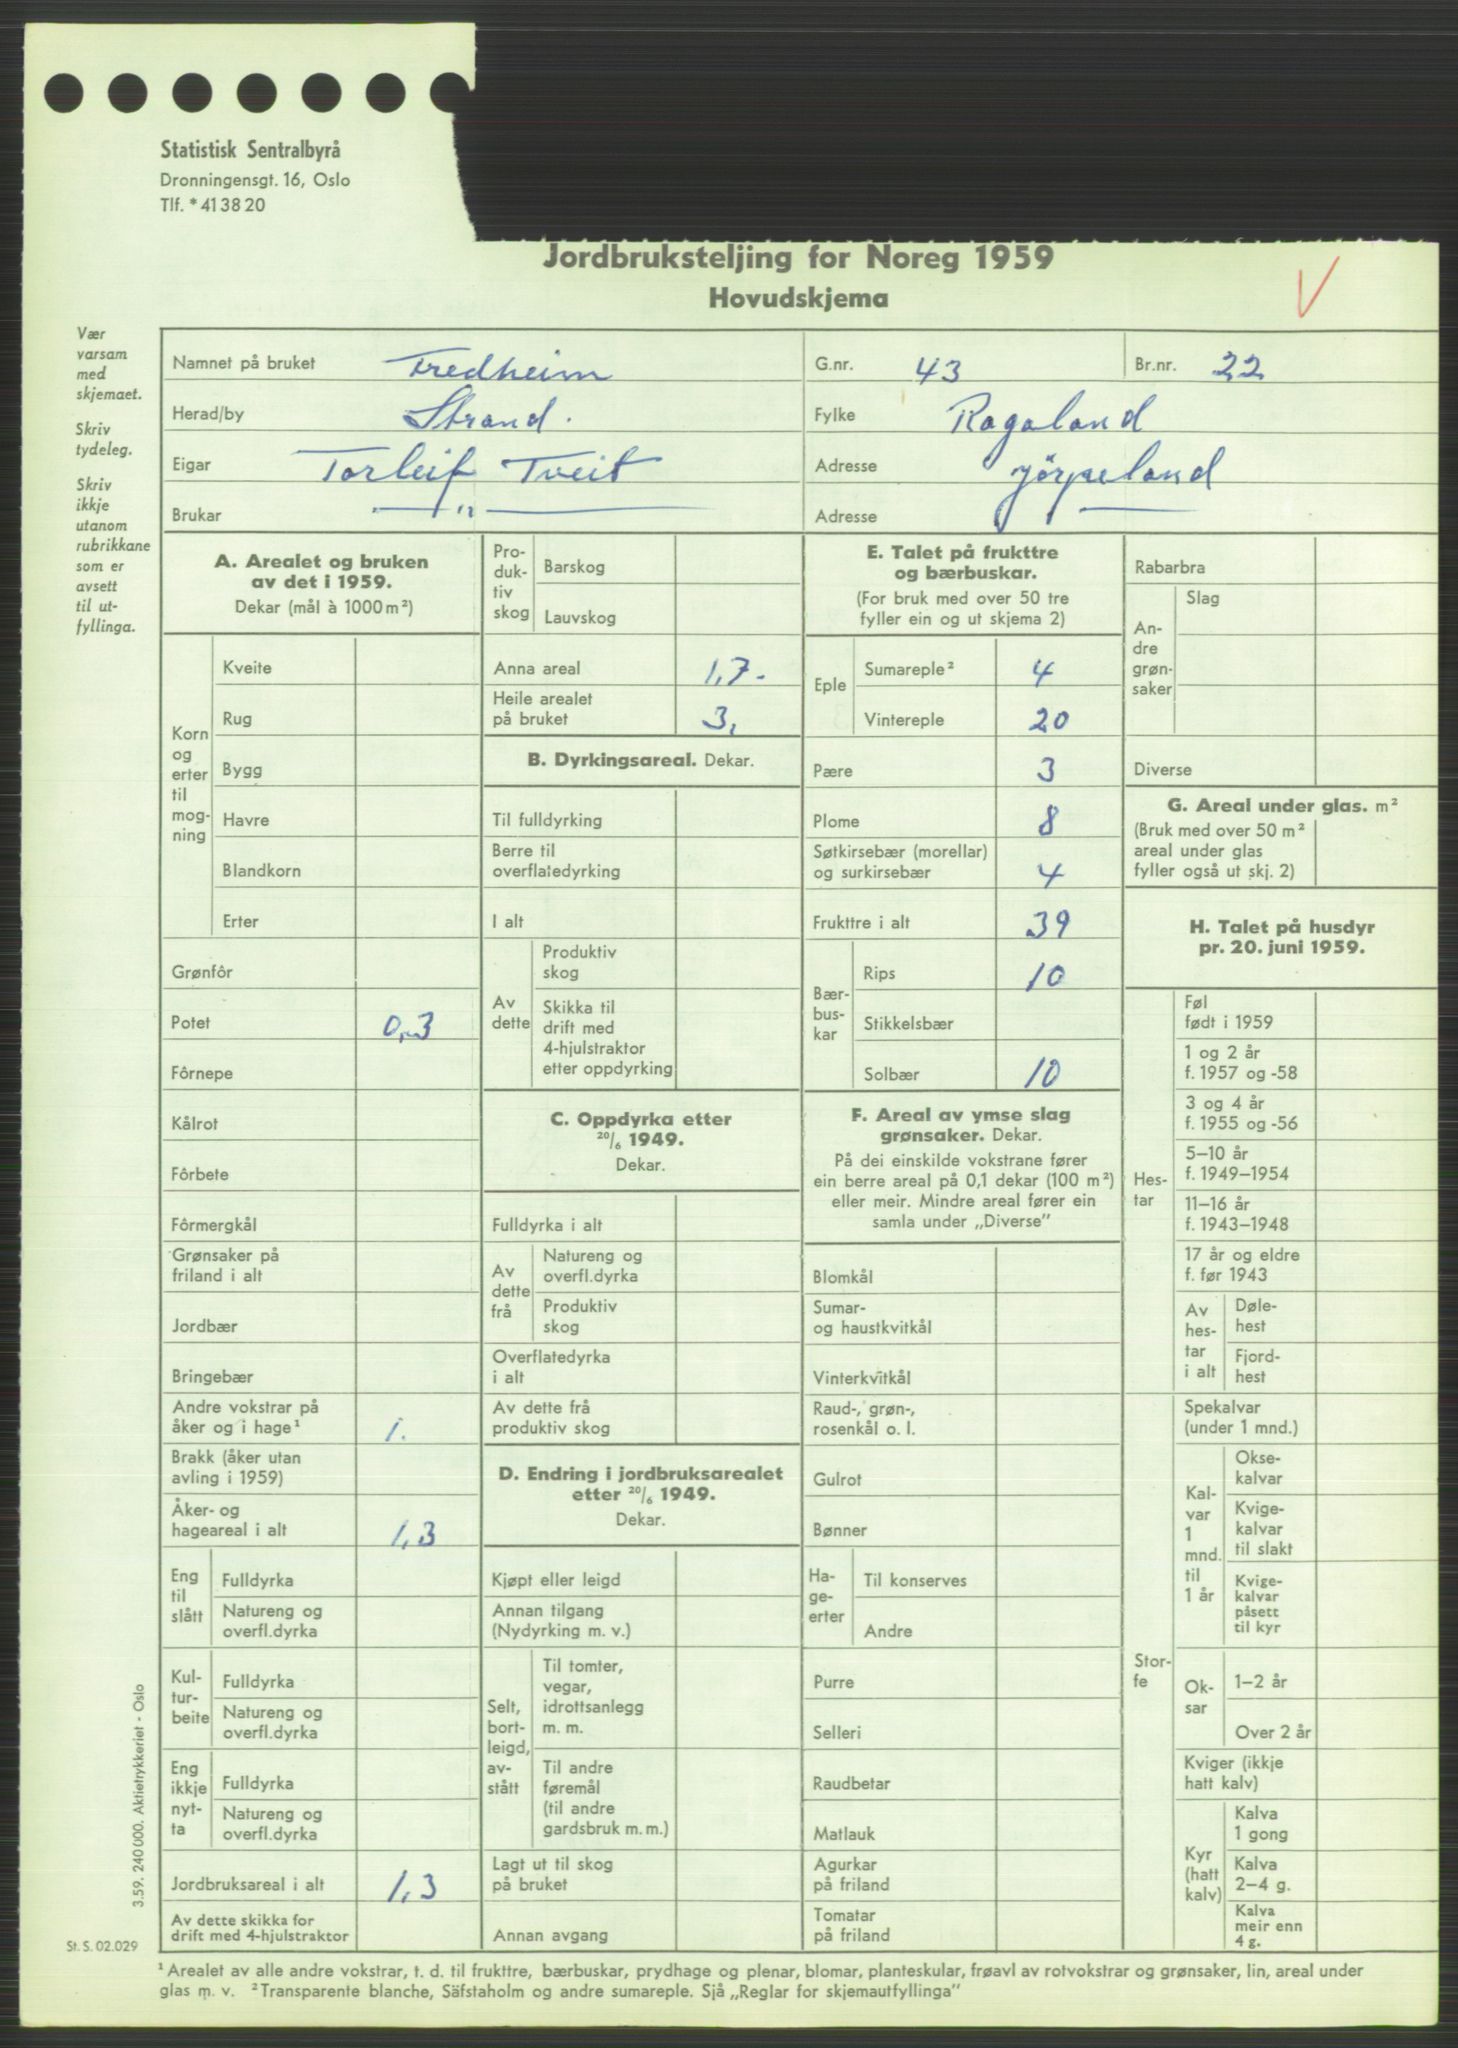 Statistisk Sentralbyrå
Dronningensgt. 16, Oslo
Tlf. * 41 38 20
Jordbruksteljing for Noreg 1959
Hovudskjema
V
Vær
varsam
med
skjemaet.
Skriv
tydeleg.
Skriv
ikkje
utanom
rubrikkane
som er
avsett
til ut-
fyllinga.
Namnet på bruket Fredheim G.nr. 43 Br.nr. 22
Herad/by Strand. Fylke Rogaland
Eigar Torleif Tveit Adresse Jørpeland
Brukar —„— Adresse
A. Arealet og bruken
av det i 1959.
Dekar (mål à 1000 m²)
Korn
og
erter
til
mog-
ning
Kveite
Rug
Bygg
Havre
Blandkorn
Erter
Grønfôr
Potet 0,3
Fôrnepe
Kålrot
Fôrbete
Fôrmergkål
Grønsaker på
friland i alt
Jordbær
Bringebær
Andre vokstrar på
åker og i hage¹ 1.
Brakk (åker utan
avling i 1959)
Åker- og
hageareal i alt 1,3
Eng
til
slått
Fulldyrka
Natureng og
overfl.dyrka
Kul-
tur-
beite
Fulldyrka
Natureng og
overfl.dyrka
Eng
ikkje
nyt-
ta
Fulldyrka
Natureng og
overfl.dyrka
Jordbruksareal i alt 1,3
Av dette skikka for
drift med 4-hjulstraktor
Pro-
duk-
tiv
skog
Barskog
Lauvskog
Anna areal 1,7.-
Heile arealet
på bruket 3,
B. Dyrkingsareal. Dekar.
Til fulldyrking
Berre til
overflatedyrking
I alt
Av
dette
Produktiv
skog
Skikka til
drift med
4-hjulstraktor
etter oppdyrking
C. Oppdyrka etter
20/6 1949.
Dekar.
Fulldyrka i alt
Av
dette
frå
Natureng og
overfl.dyrka
Produktiv
skog
Overflatedyrka
i alt
Av dette frå
produktiv skog
D. Endring i jordbruksarealet
etter 20/6 1949.
Dekar.
Kjøpt eller leigd
Annan tilgang
(Nydyrking m. v.)
Selt,
bort-
leigd,
av-
stått
Til tomter,
vegar,
idrottsanlegg
m. m.
Til andre
føremål
(til andre
gardsbruk m. m.)
Lagt ut til skog
på bruket
Annan avgang
E. Talet på frukttre
og bærbuskar.
(For bruk med over 50 tre
fyller ein og ut skjema 2)
Eple
Sumareple² 4
Vintereple 20
Pære 3
Plome 8
Søtkirsebær (morellar)
og surkirsebær 4
Frukttre i alt 39
Bær-
bus-
kar
Rips 10
Stikkelsbær
Solbær 10
F. Areal av ymse slag
grønsaker. Dekar.
På dei einskilde vokstrane fører
ein berre areal på 0,1 dekar (100 m²)
eller meir. Mindre areal fører ein
samla under „Diverse”
Blomkål
Sumar-
og haustkvitkål
Vinterkvitkål
Raud-, grøn-,
rosenkål o. l.
Gulrot
Bønner
Ha-
ge-
erter
Til konserves
Andre
Purre
Selleri
Raudbetar
Matlauk
Agurkar
på friland
Tomatar
på friland
Rabarbra
An-
dre
grøn-
saker
Slag
Diverse
G. Areal under glas. m²
(Bruk med over 50 m²
areal under glas
fyller også ut skj. 2)
H. Talet på husdyr
pr. 20. juni 1959.
Hes-
tar
Føl
født i 1959
1 og 2 år
f. 1957 og -58
3 og 4 år
f. 1955 og -56
5–10 år
f. 1949–1954
11–16 år
f. 1943–1948
17 år og eldre
f. før 1943
Av
hes-
tar
i alt
Døle-
hest
Fjord-
hest
Stor-
fe
Spekalvar
(under 1 mnd.)
Kal-
var
1
mnd.
til
1 år
Okse-
kalvar
Kvige-
kalvar
til slakt
Kvige-
kalvar
påsett
til kyr
Ok-
sar
1–2 år
Over 2 år
Kviger (ikkje
hatt kalv)
Kyr
(hatt
kalv)
Kalva
1 gong
Kalva
2–4 g.
Kalva
meir enn
4 g.
3.59. 240 000. Aktietrykkeriet - Oslo
St. S. 02.029
¹ Arealet av alle andre vokstrar, t. d. til frukttre, bærbuskar, prydhage og plenar, blomar, planteskular, frøavl av rotvokstrar og grønsaker, lin, areal under
glas m. v. ² Transparente blanche, Säfstaholm og andre sumareple. Sjå „Reglar for skjemautfyllinga”